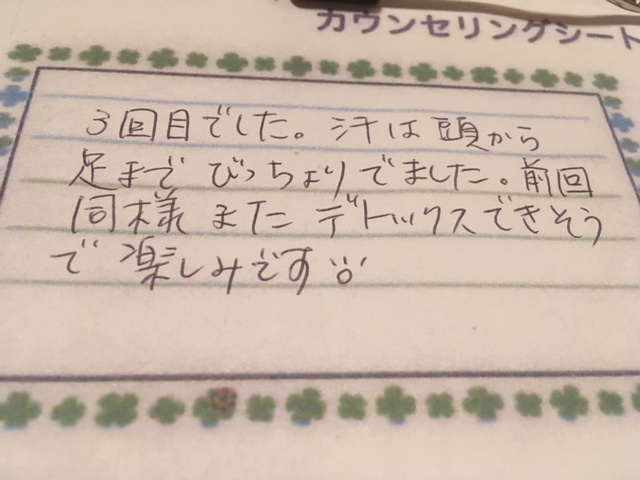 カウンセリングシート
3回目でした。汗は頭から
足まで びっちょりでました。前回
同様 また デトックスできそう
で 楽しみです